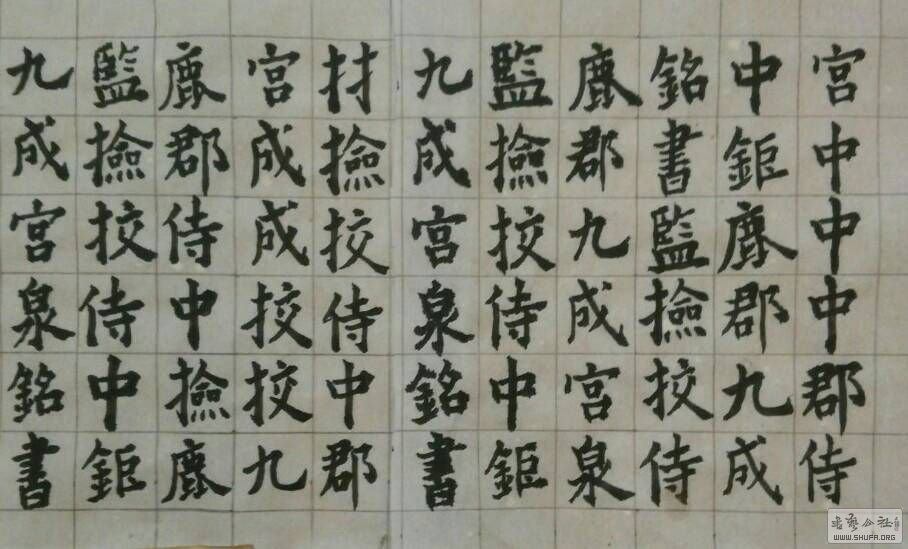 九成宮泉銘書
監撿挍侍中鉅
鹿郡侍中撿鹿
宮成成挍挍九
材撿挍侍中郡
九成宮泉銘書
監撿挍侍中鉅
鹿郡九成宮泉
銘書監撿挍侍
中鉅鹿郡九成
宮中中中郡侍
書藝公社
WWW.SHUFA.ORG